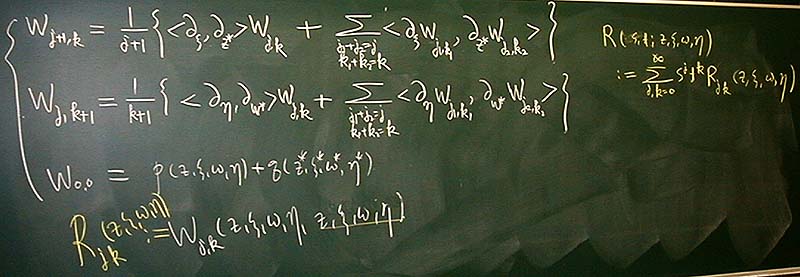 W_{j+1,k} = \frac{1}{j+1} { <∂_ξ, ∂_{z*}> W_{j,k} + \sum_{j_1+j_2=j, k_1+k_2=k} <∂_ξ W_{j_1,k_1}, ∂_{z*} W_{j_2,k_2}> }
W_{j,k+1} = \frac{1}{k+1} { <∂_η, ∂_{w*}> W_{j,k} + \sum_{j_1+j_2=j, k_1+k_2=k} <∂_η W_{j_1,k_1}, ∂_{w*} W_{j_2,k_2}> }
W_{0,0} = p(z,ξ,w,η) + q(z*,ξ*,w*,η*)
R_{jk}(z,ξ,w,η) := W_{j,k}(z,ξ,w,η, z,ξ,w,η)
:= \sum_{j,k=0}^{∞} s^j t^k R_{jk}(z,ξ,w,η)